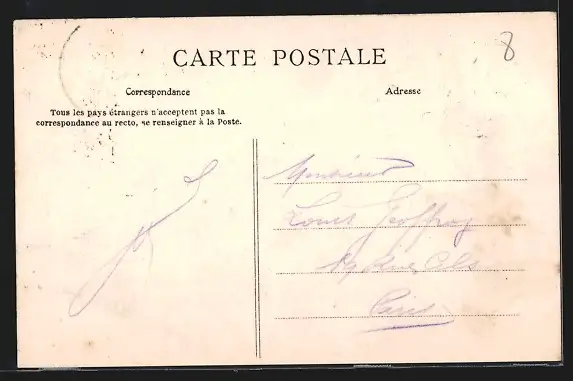 8
CARTE POSTALE
Correspondance
Adresse
Tous les pays étrangers n'acceptent pas la
correspondance au recto, se renseigner à la Poste.
Monsieur
Louis Geoffroy
Paris